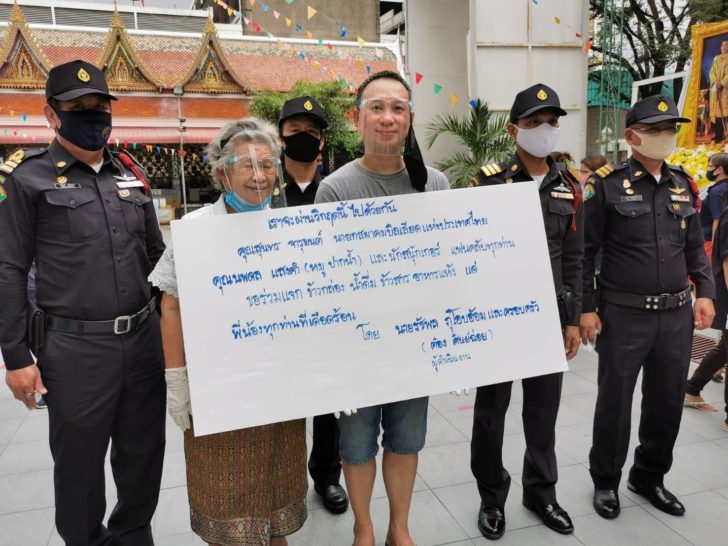 เราจะผ่านวิกฤตนี้ ไปด้วยกัน
คุณสุนทร จารุมนต์ นายกสมาคมบิลเลียดแห่งประเทศไทย
คุณนพดล แสงนิล (หมู ปากน้ำ) และนักสนุกเกอร์ แฟนคลับทุกท่าน
ขอร่วมแจก ข้าวกล่อง น้ำดื่ม ข้าวสาร อาหารแห้ง แด่
พี่น้องทุกท่านที่เดือดร้อน โดย นายรัชพล ภู่โอบอ้อม และครอบครัว
(ต๋อง ศิษย์ฉ่อย)
ผู้ดำเนินงาน